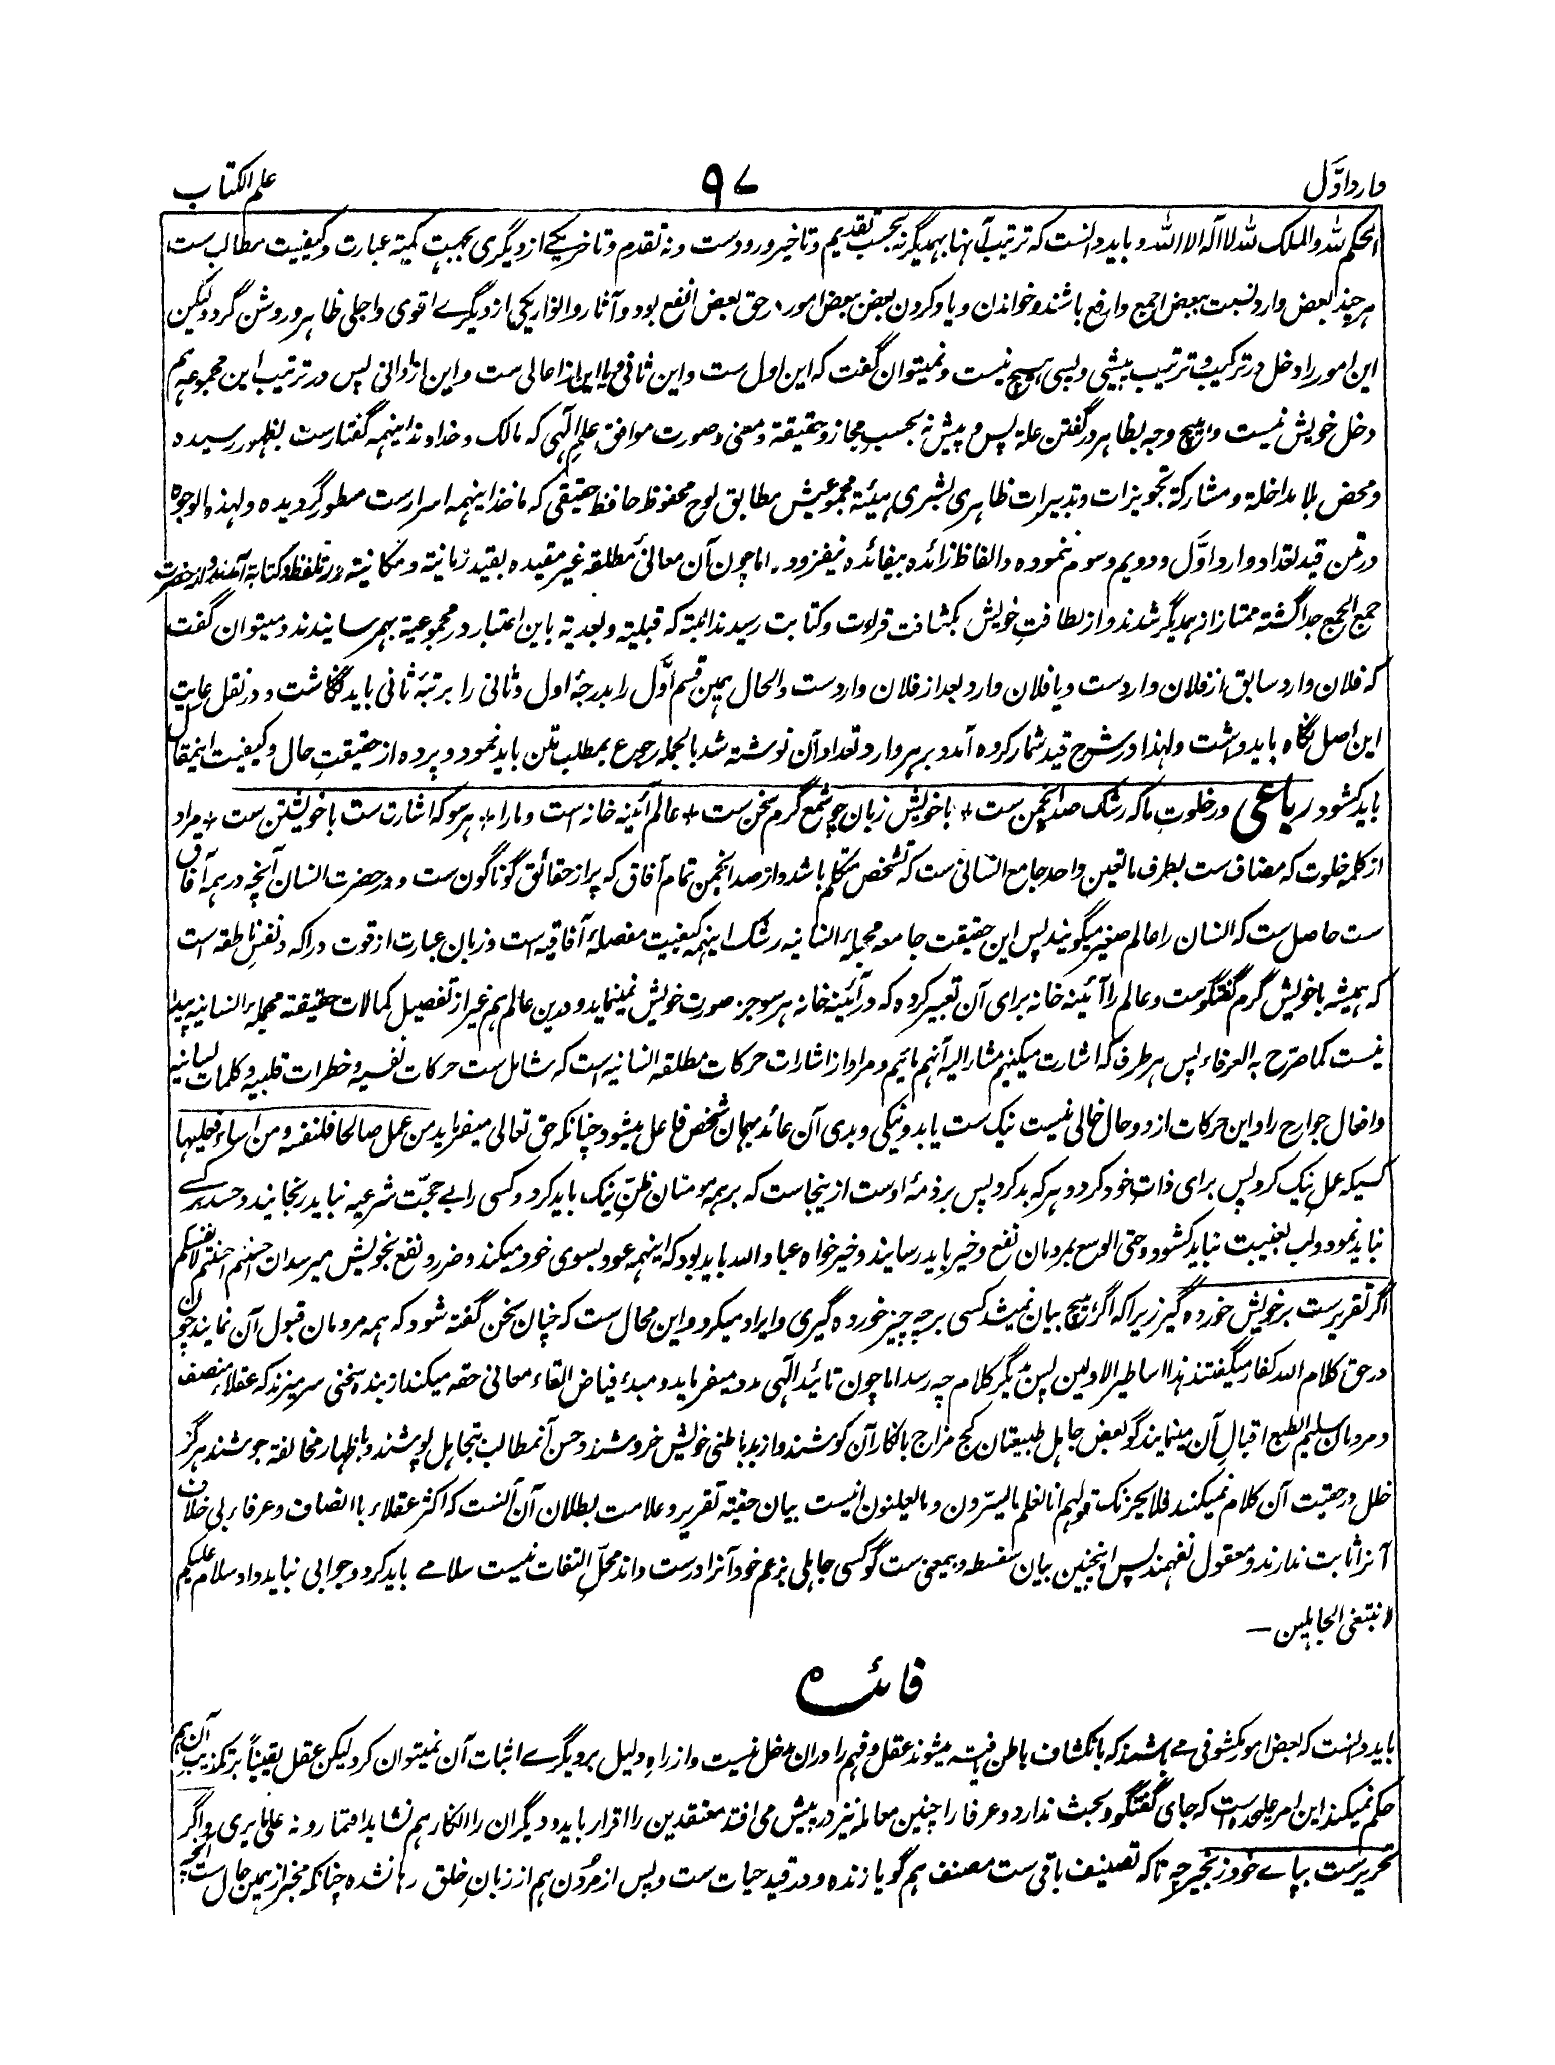 وارد اوَّل
۹۷
علم الکتاب
الحکم للہ والملک للہ لا الہ الا اللہ و باید دانست کہ ترتیب آنہا بہمیگر نہ بحسب تقدیم و تاخیر ورودست و نہ تقدم و تاخر یکے از دیگری بجہت کمیتہ عبارت و کیفیت مطالب ست
ہر چند بعض وارد نسبت ببعض اجمع و ارفع باشند و خواندن و یاد کردن بعض بعض امور در حق بعض انفع بود و آثار و انوار یکی از دیگرے اقوی و اجلی ظاہر و روشن گردد لیکن
این امور را دخل در ترکیب و ترتیب پیشی و پسی ہیچ نیست و نمیتوان گفت کہ این اول ست و این ثانی و یا این از اعالی ست و این از ادانی پس در ترتیب این مجموعہ ہم
دخل خویش نیست و ہیچ وجہ بظاہر در گفتن علۃ پس و پیش نہ بحسب مجاز و حقیقۃ و معنی و صورت موافق علمِ الٓہی کہ مالک و خداوند اینہمہ گفتارست بظہور رسیدہ
و محض بلا مداخلۃ و مشارکۃ تجویزات و تدبیرات ظاہری بشری ہیئۃ مجموعیش مطابق لوح محفوظ حافظ حقیقی کہ ماخذ اینہمہ اسرارست مسطور گردیدہ و لہذہ الوجوہ
در متن قید تعداد وارد اوَّل و دویم و سوم ننمودہ و الفاظ زائدہ بیفائدہ نیفزود۔ اما چون آن معانیٔ مطلقہ غیر مقیدہ بقید زمانیۃ و مکانیۃ در تلفظ و کتابۃ آمدند و از حضرت
جمع الجمع جدا گشتہ ممتاز از ہمدیگر شدند و از لطافتِ خویش بکثافت قراءت و کتابت رسیدند البتہ کہ قبلیۃ و بعدیۃ باین اعتبار در مجموعیۃ بہم رسانیدند و میتوان گفت
کہ فلان وارد سابق از فلان واردست و یا فلان وارد بعد از فلان واردست و الحال ہمین قسم اوَّل را بدرجۂ اول و ثانی را برتبۂ ثانی باید نگاشت و در نقل رعایت
این اصل نگاہ باید داشت و لہذا در شرح قید شمار کردہ آمد و بر ہر وارد تعداد آن نوشتہ شد بالجملہ رجوع بمطلب متن باید نمود و پردہ از حقیقتِ حال و کیفیت اینمقال
باید کشود رباعی در خلوتِ ما کہ رشک صد انجمن ست + با خویش زبان چو شمع گرم سخن ست + عالم آئینہ خانہ است و مارا + ہر سو کہ اشارت ست با خویشتن ست + مراد
از کلمہ خلوت کہ مضاف ست بطرف ما تعین واحد جامع انسانی ست کہ تشخص متکلم باشد و از صد انجمن تمام آفاق کہ پر از حقائق گوناگون ست و در حضرت انسان آنچہ در ہمہ آفاق
ست حاصل ست کہ انسان را عالم صغیر میگویند پس این حقیقت جامعہ مجملۂ انسانیہ رشک اینہمہ کیفیت مفصلۂ آفاقیہ است و زبان عبارت از قوت دراکہ و نفسِ ناطقہ است
کہ ہمیشہ با خویش گرم گفتگوست و عالم را آئینہ خانہ برای آن تعبیر کردہ کہ در آئینہ خانہ ہر سو جز صورت خویش نمینماید و درین عالم ہم غیر از تفصیل کمالات حقیقۃ مجملۂ انسانیہ پیدا
نیست کما صرّح بہ العرفاء پس ہر طرف کہ اشارت میکنیم مشار الیہ آنہم مائیم و مراد از اشارات حرکات مطلقہ انسانیہ است کہ شامل ست حرکات نفسیہ و خطرات قلبیہ و کلمات لسانیہ
و افعال جوارح را و این حرکات از دو حال خالی نیست نیک ست یا بد و نیکی و بدی آن عائد بہمان شخص فاعل میشود چنانکہ حق تعالی میفرماید من عمل صالحا فلنفسہ و من اساء فعلیہا
کسیکہ عملِ نیک کرد پس برای ذاتِ خود کرد و ہر کہ بد کرد پس بر ذمۂ اوست ازینجاست کہ بر ہمہ مومنان ظنِّ نیک باید کرد و کسی را بے حجّت شرعیہ نباید رنجانید و حسد بر کسے
نباید نمود و لب بغیبت نباید کشود و حتی الوسع بمردمان نفع و خیر باید رسانید و خیر خواہ عباد اللہ باید بود کہ اینہمہ عود بسوی خود میکند و ضرر و نفع بخویش میرسد ان احسنتم احسنتم لانفسکم
اگر تقریرست بر خویش خوردہ گیر زیرا کہ اگر ہیچ بیان نمیشد کسی بر چہ چیز خوردہ گیری و ایراد میکرد و این محال ست کہ چنان سخن گفتہ شود کہ ہمہ مردمان قبول آن نمایند چون
در حق کلام اللہ کفار میگفتند ہذا اساطیر الاولین پس بدیگر کلام چہ رسد اما چون تائید الٓہی مدد میفرماید و مبدء فیاض القاء معانی حقہ میکند از بندہ سخنی سرمیزند کہ عقلاء منصف
و مردمان سلیم الطبع اقبالِ آن مینمایند گو بعض جاہل طبیعتان کج مزاج بانکار آن کوشند و از بد باطنی خویش خروشند و حسن آنمطالب بتجاہل پوشند و باظہار مخالفۃ جوشند ہرگز
خلل در حقیت آن کلام نمیکند فلا یحزنک قولہم انا نعلم ما یسرّون و ما یعلنون انیست بیان حقیۃ تقریر و علامت بطلان آن آنست کہ اکثر عقلاء با انصاف و عرفاء بی خلاف
آنرا ثابت ندارند و معقول نفہمند پس اینچنین بیان سفسطہ و بیمعنی ست گو کسی جاہلی بزعم خود آنرا درست داند محلِّ التفات نیست سلامے باید کرد و جوابی نباید داد سلام علیکم
لا نبتغی الجاہلین —
فائدہ
باید دانست کہ بعض امور کشوفی مے باشند کہ بانکشاف باطن یافتہ میشوند عقل و فہم را در ان مدخل نیست و از راہِ دلیل بر دیگرے اثبات آن نمیتوان کرد لیکن عقل یقیناً بر تکذیب آن ہم
حکم نمیکند این امر علحدہ است کہ جای گفتگو و بحث ندارد و عرفا را چنین معاملہ نیز در پیش می افتد معتقدین را اقرار باید و دیگران را انکار ہم نشاید افتمارونہ علی ما یری و اگر
تحریرست بپاے خود زنجیر چہ تا کہ تصنیف باقی ست مصنف ہم گویا زندہ و در قید حیات ست و پس از مُردن ہم از زبانِ خلق رہا نشدہ چنانکہ مخبر از ہمین حال ست